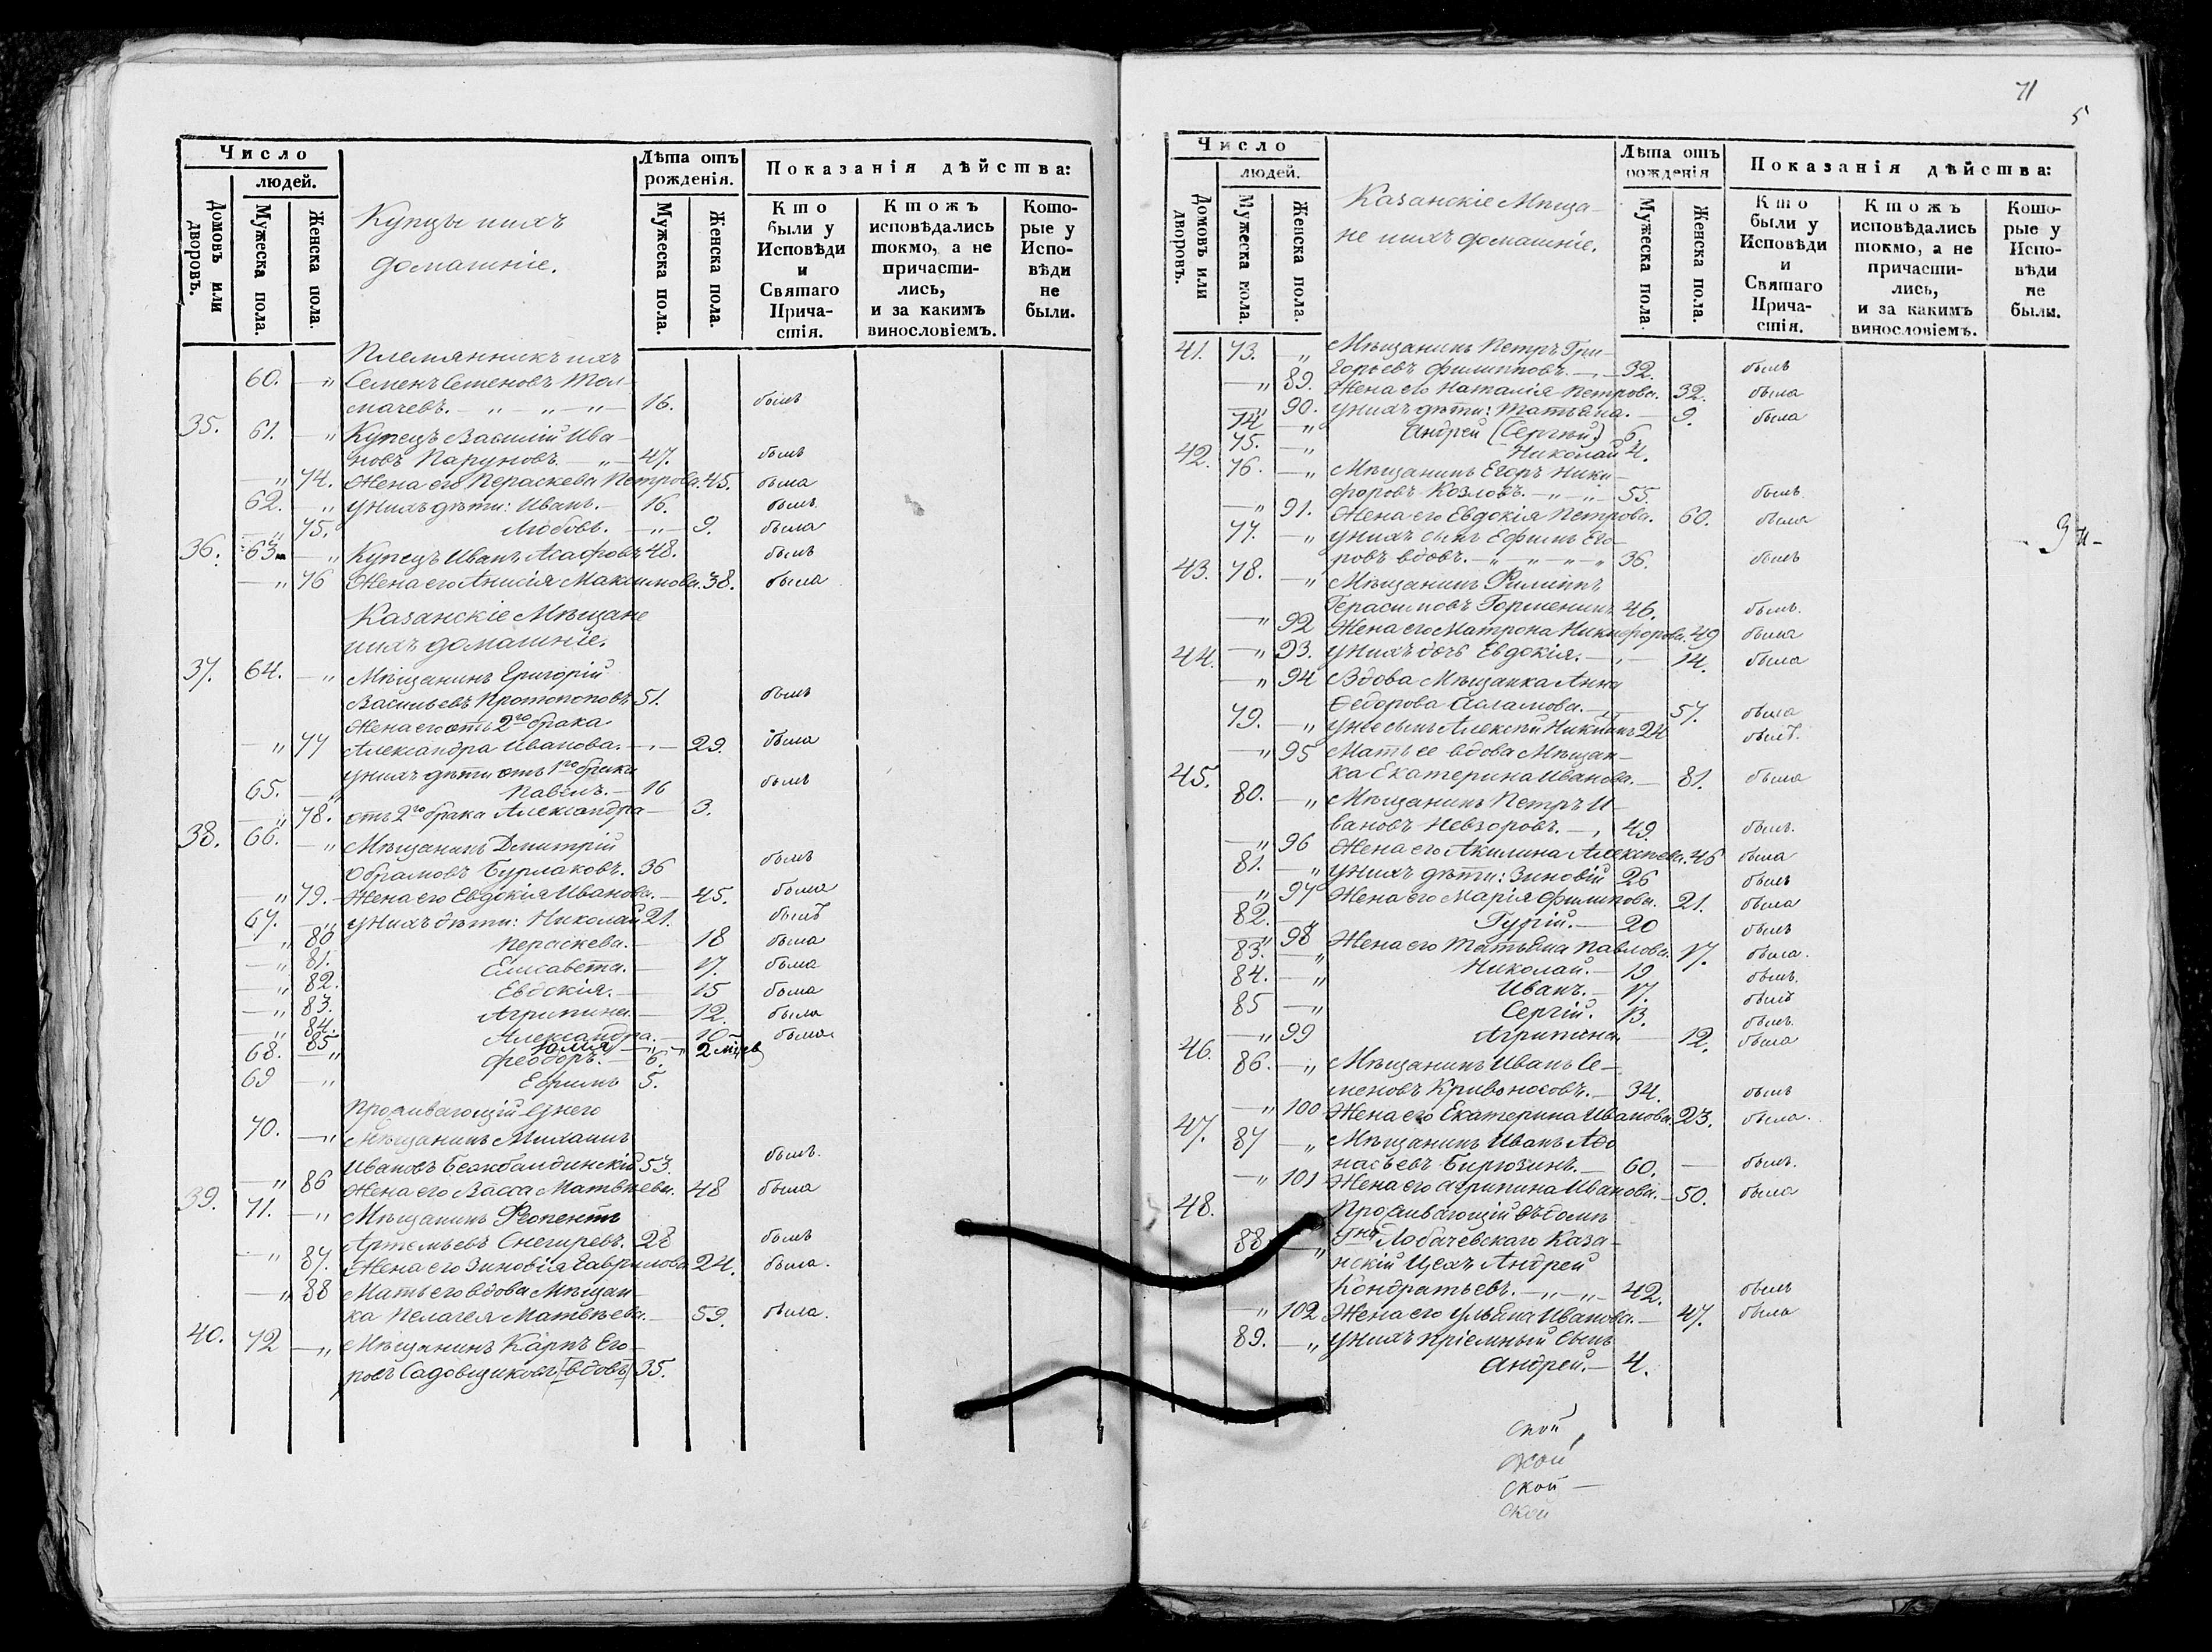 Число
людей.
Домовъ или дворовъ.
Мужеска пола.
Женска пола.
Купцы ихъ
домашніе.
Лѣта отъ рожденія.
Мужеска пола.
Женска пола.
Показанія дѣйства:
Кто были у Исповѣди и Святаго Причастія.
Ктожъ исповѣдались токмо, а не причастились, и за какимъ винословіемъ.
Которые у Исповѣди не были.
Племянникъ ихъ
60. — „ Семенъ Семеновъ Тол-
мачевъ. — „ — „ — „ — 16. былъ
35. 61. — „ Купецъ Василій Ива-
новъ Паруновъ. — „ — 47. былъ
— „ 74. Жена его Параскева Петрова. 45. была
62. — „ У нихъ дѣти: Иванъ. — 16. былъ
— „ 75. Любовь. — „ — 9. была
36. 63. — „ Купецъ Иванъ Асафовъ 48. былъ
— „ 76 Жена его Анисія Максимова. 38. была
Казанскіе Мѣщане
ихъ домашніе.
37. 64. — „ Мѣщанинъ Григорій
Васильевъ Протопоповъ 51. былъ
Жена его отъ 2го брака
— „ 77 Александра Иванова. — „ — 29. была
У нихъ дѣти отъ 1го брака
65. — „ Павелъ. — 16 былъ
— „ 78. отъ 2го брака Александра — 3.
38. 66. — „ Мѣщанинъ Дмитрій
Абрамовъ Бурлаковъ. 36 былъ
— „ 79. Жена его Евдокія Иванова. — 45. была
67. — „ У нихъ дѣти: Николай 21. былъ
— „ 80 Параскева. — 18 была
— „ 81. Елисавета. — 17. была
— „ 82. Евдокія. — 15 была
— „ 83. Агрипина. — 12. была
— „ 84. Александра. — 10 — была
85 Юлія — „ — 2 мѣсец
68. — „ Феодоръ. — 6.
69 — „ Ефимъ 5.
Проживающій у него
70. — „ Мѣщанинъ Михаилъ
Ивановъ 53. былъ.
— „ 86 Жена его Васса Матвѣева. 48 была
39. 71. — „ Мѣщанинъ
Артемьевъ Снегиревъ. 28 былъ
— „ 87. Жена его Зиновія Гаврилова 24. была.
— „ 88 Мать его вдова Мѣщан-
ка Пелагея Матвѣева. — 59. была.
40. 72 — „ Мѣщанинъ Карпъ Его-
ровъ Садовщиковъ (вдовъ) 35.
71
5
Число
людей.
Домовъ или дворовъ.
Мужеска пола.
Женска пола.
Казанскіе Мѣща-
не ихъ домашніе.
Лѣта отъ рожденія
Мужеска пола.
Женска пола.
Показанія дѣйства:
Кто были у Исповѣди и Святаго Причастія.
Ктожъ исповѣдались токмо, а не причастились, и за какимъ винословіемъ.
Которые у Исповѣди не были.
41. 73. — „ Мѣщанинъ Петръ Гри-
горьевъ Филипповъ. — „ — 32. былъ
— „ 89. Жена его Наталія Петрова. 32. была
— „ 90. У нихъ дѣти: Татьяна. — 9. была
74 — „ Андрей (Сергій) 6
75. — „ Николай 4.
42. 76. — „ Мѣщанинъ Егоръ Ники-
форовъ Козловъ. — „ — „ 55. былъ
— „ 91. Жена его Евдокія Петрова. 60. была
77. — „ У нихъ сынъ Ефимъ Его-
ровъ вдовъ. — „ — „ — „ 36. былъ
43. 78. — „ Мѣщанинъ Филиппъ
Герасимовъ Горшенинъ 46. былъ.
— „ 92 Жена его Матрона Никифорова. 49 была
— „ 93. У нихъ дочь Евдокія. — „ — 14. была
44. — „ 94 Вдова Мѣщанка Анна
Федорова — „ — 57. была
79. — „ У нее сынъ Алексѣй Никитинъ 24 былъ.
— „ 95 Мать ее вдова Мѣщан-
ка Екатерина Иванова. — 81. была
45. 80. — „ Мѣщанинъ Петръ И-
вановъ Невзоровъ. — „ 49. былъ.
— „ 96 Жена его Акилина Алексѣева. 46 была
81. — „ У нихъ дѣти: Зиновій 26 былъ
— „ 97 Жена его Марія Филипова. 21. была
82. — „ Гурій. — 20 былъ
— „ 98 Жена его Татьяна Павлова. 17. была.
83. — „ Николай. — 19 былъ.
84. — „ Иванъ. — 17. былъ
85 — „ Сергій. 13. былъ.
— „ 99 Агрипина. — 12. была
46. 86. — „ Мѣщанинъ Иванъ Се-
меновъ Кривоносовъ. — 34. былъ
— „ 100 Жена его Екатерина Иванова. 23. была.
47. 87 — „ Мѣщанинъ Иванъ Афо
насьевъ Бирюзинъ. — 60. — былъ.
— „ 101 Жена его Агрипина Иванова. — 50. была
48. Проживающій въ домѣ
88. — „ Лобачевскаго Каза-
нскій Цехъ Андрей
Кондратьевъ. — „ — „ 42. былъ
— „ 102 Жена его Ульяна Иванова. — 47. была
89. — „ У нихъ пріемный сынъ
Андрей. — 4.
ской
ской
ской —
ской